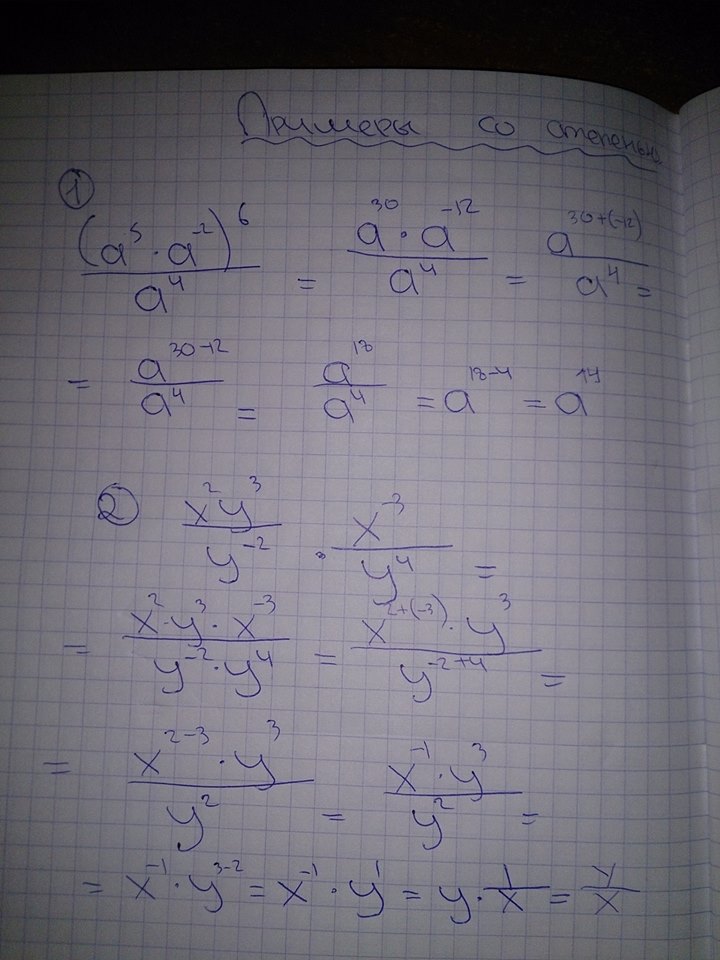 Примеры со степенью
①
(a⁵ · a⁻²)⁶ / a⁴ = a³⁰ · a⁻¹² / a⁴ = a³⁰⁺⁽⁻¹²⁾ / a⁴ =
= a³⁰⁻¹² / a⁴ = a¹⁸ / a⁴ = a¹⁸⁻⁴ = a¹⁴
② x²y³ / y⁻² · x⁻³ / y⁴ =
= x² · y³ · x⁻³ / y⁻² · y⁴ = x²⁺⁽⁻³⁾ · y³ / y⁻²⁺⁴ =
= x²⁻³ · y³ / y² = x⁻¹ · y³ / y² =
= x⁻¹ · y³⁻² = x⁻¹ · y¹ = y · 1/x = y/x